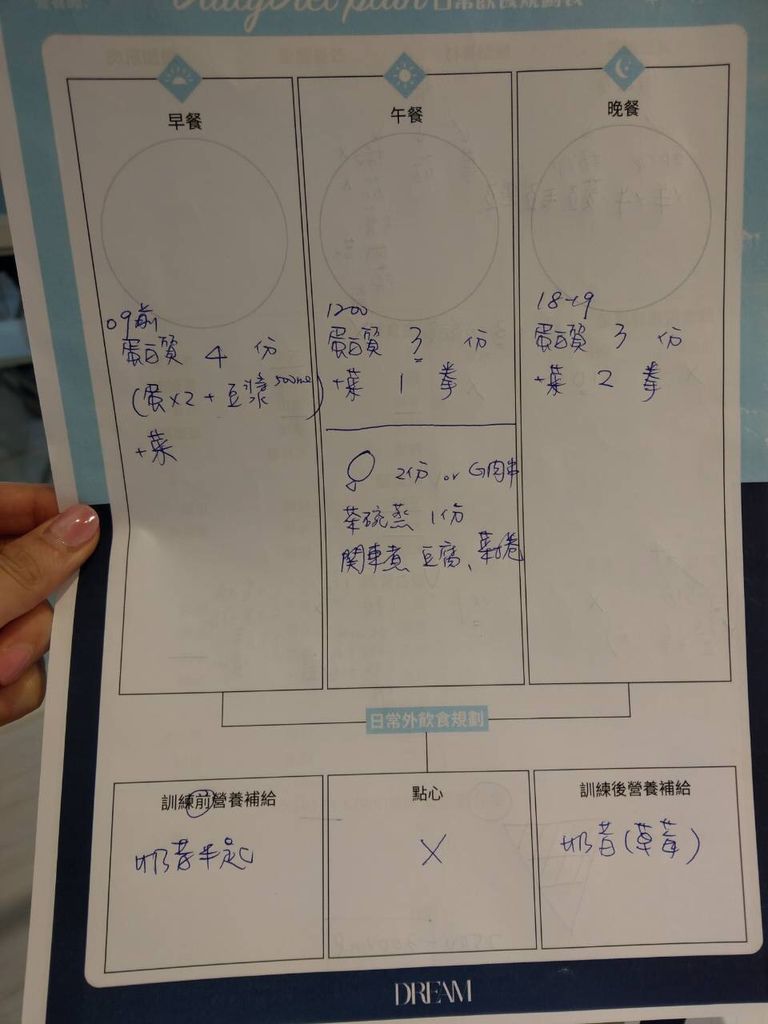 日常飲食規劃表
早餐
09前
蛋白質 4 份
(蛋x2 + 豆漿500ml)
+菜
午餐
1200
蛋白質 3 份
+菜 1 拳
2份 or G肉串
茶碗蒸 1份
関東煮 豆腐、菜卷
晚餐
18-19
蛋白質 3 份
+菜 2 拳
日常外飲食規劃
訓練前營養補給
奶昔半匙
點心
X
訓練後營養補給
奶昔(草莓)
DREAM